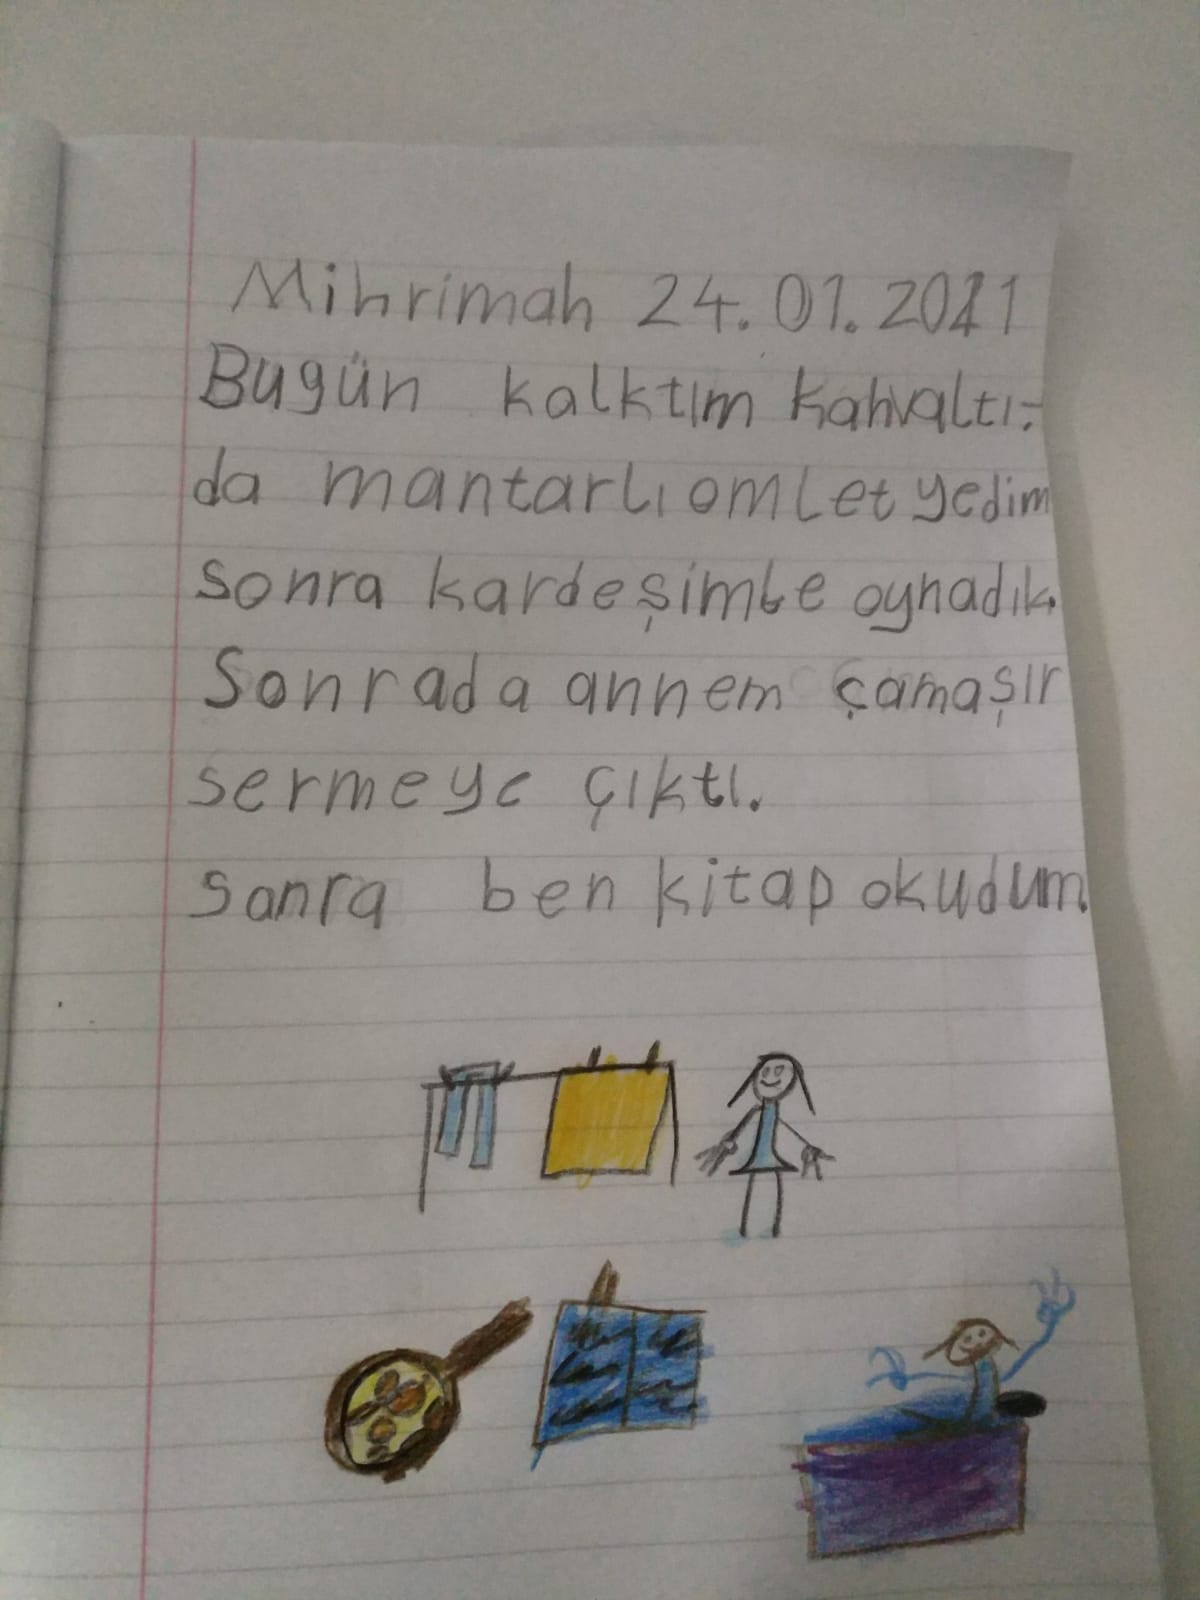 Mihrimah 24.01.2021
Bugün kalktım kahvaltı-
da mantarlı omlet yedim
sonra kardeşimle oynadık.
Sonrada annem çamaşır
sermeye çıktı.
sonra ben kitap okudum.